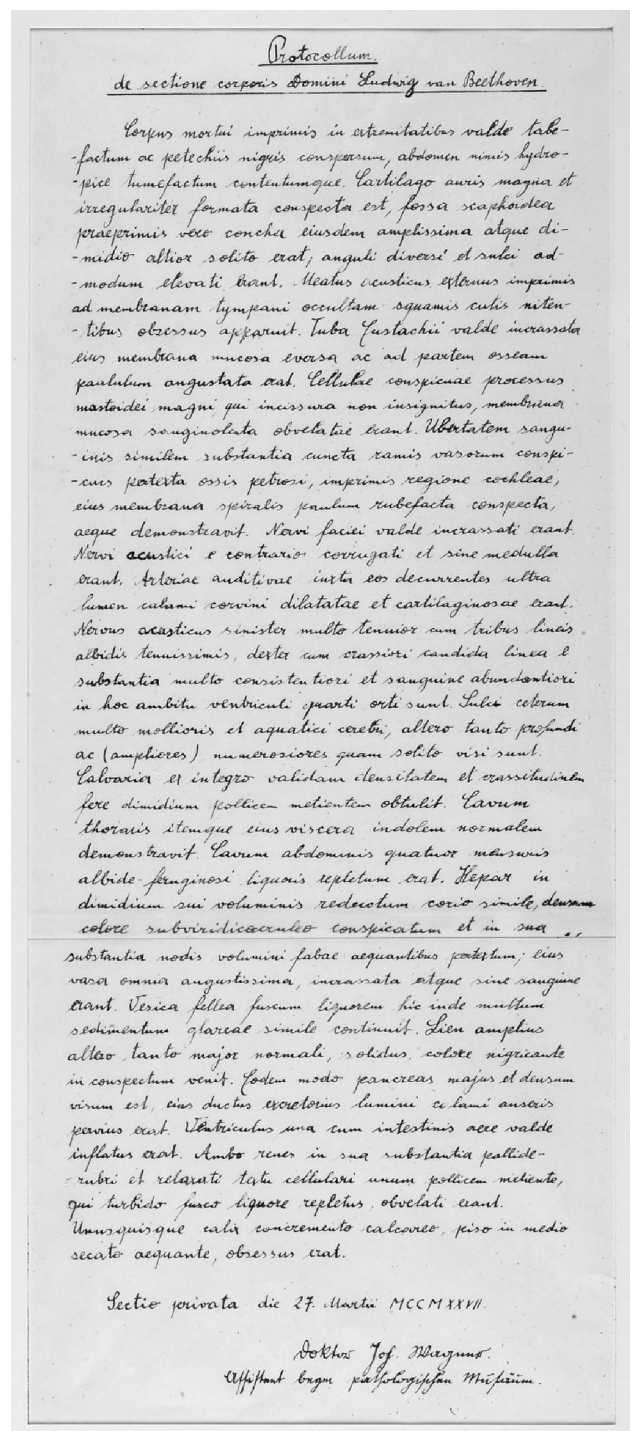 Protocollum
de sectione corporis Domini Ludwig van Beethoven.
Corpus mortui imprimis in extremitatibus valde tabe-
-factum ac petechiis nigris conspersum, abdomen nimis hydro-
-pice tumefactum contentumque. Cartilago auris magna et
irregulariter formata conspecta est, fossa scaphoidea
praeprimis vero concha eiusdem amplissima atque di-
-midio altior solito erat; anguli diversi et sulci ad-
-modum elevati erant. Meatus acusticus externus imprimis
ad membranam tympani occultam squamis cutis niten-
-tibus obsessus apparuit. Tuba Eustachii valde incrassata
eius membrana mucosa eversa ac ad partem osseam
paululum angustata erat. Cellulae conspicuae processus
mastoidei magni qui incissura non insignitus, membrana
mucosa sanguinolenta obvelatae erant. Ubertatem sangu-
-inis similem substantia cuncta ramis vasorum conspi-
-cuis pertexta ossis petrosi, imprimis regione cochleae,
eius membrana spiralis paulum rubefacta conspecta,
aeque demonstravit. Nervi faciei valde incrassati erant.
Nervi acustici e contrario corrugati et sine medulla
erant. Arteriae auditivae iuxta eos decurrentes ultra
lumen calami corvini dilatatae et cartilaginosae erant.
Nervus acusticus sinister multo tenuior cum tribus lineis
albidis tenuissimis, dexter cum crassiori candida linea e
substantia multo consistentiori et sanguine abundantiori
in hoc ambitu ventriculi quarti orti sunt. Sulci ceterum
multo mollioris et aquatici cerebri, altero tanto profundi
ac (ampliores) numerosiores quam solito visi sunt.
Calvaria ex integro validam densitatem et crassitudinem
fere dimidium pollicem metientem obtulit. Cavum
thoracis itemque eius viscera indolem normalem
demonstravit. Cavum abdominis quatuor mensuris
albide-feruginosi liquoris repletum erat. Hepar in
dimidium sui voluminis redactum corio simile, densum
colore subviridicaeruleo conspicatum et in sua
substantia nodis volumini fabae aequantibus pertextum; eius
vasa omnia angustissima, incrassata atque sine sanguine
erant. Vesica fellea fuscum liquorem hic inde multum
sedimentum glareae simile continuit. Lien amplius
altero tanto major normali, solidus, colore nigricante
in conspectum venit. Eodem modo pancreas majus et densum
visum est, eius ductus excretorius lumini calami anseris
pervius erat. Ventriculus una cum intestinis aere valde
inflatus erat. Ambo renes in sua substantia pallide-
-rubri et relaxati textu cellulari unum pollicem metiente,
qui turbido fusco liquore repletus, obvelati erant.
Unusquisque calix concremento calcareo, piso in medio
secato aequante, obsessus erat.
Sectio privata die 27. Martii MCCMXXVII.
Doktor Joh. Wagner.
Assistent beym pathologischen Musäum.